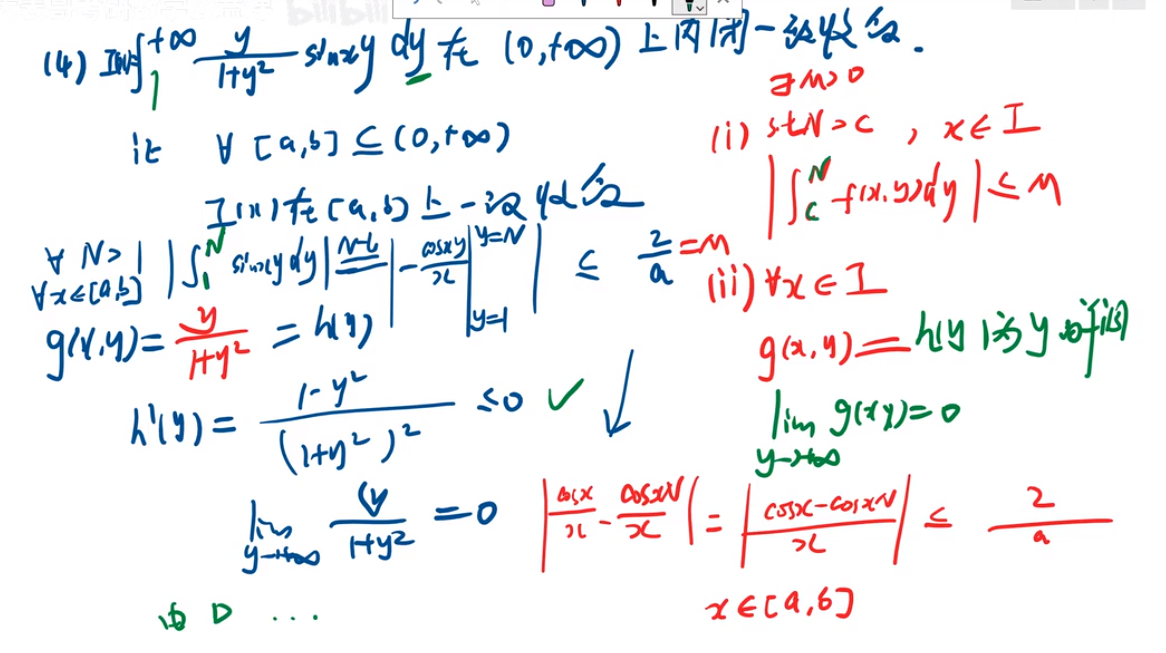 (4) I(x)=∫₁^{+∞} y/(1+y²) sinxy dy 在 (0,+∞) 上内闭一致收敛.
证 ∀ [a,b] ⊆ (0,+∞)
I(x) 在 [a,b] 上一致收敛
∀ N>1
∀x∈[a,b]
|∫₁^N sinxy dy| =(N-L)= | -cosxy/x |_{y=1}^{y=N} | ≤ 2/a = M
g(x,y)= y/(1+y²) = h(y)
h'(y)= (1-y²)/(1+y²)² ≤0 ✓
lim_{y→+∞} y/(1+y²) =0
由 D ...
∃ M>0
(i) s.t. N>c , x∈I
|∫_c^N f(x,y)dy| ≤ M
(ii) ∀x∈I
g(x,y)=h(y)为y的
lim_{y→+∞} g(x,y)=0
|cosx/x - cosxN/x| = |(cosx-cosxN)/x| ≤ 2/a
x∈[a,b]